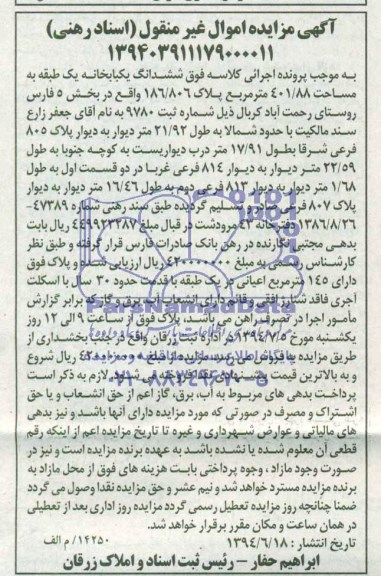 آگهی مزایده اموال غیر منقول (اسناد رهنی)
۱۳۹۴۰۳۹۱۱۱۷۹۰۰۰۰۱۱
به موجب پرونده اجرائی کلاسه فوق ششدانگ یکبابخانه یک طبقه به
مساحت ۴۰۱/۸۸ مترمربع پلاک ۱۸۶/۸۰۶ واقع در بخش ۵ فارس
روستای رحمت آباد کربال ذیل شماره ثبت ۹۷۸۰ به نام آقای جعفر زارع
سند مالکیت با حدود شمالا به طول ۲۱/۹۲ متر دیوار به دیوار پلاک ۸۰۵
فرعی شرقا بطول ۱۷/۹۱ متر درب دیواریست به کوچه جنوبا به طول
۲۲/۵۹ متر دیوار به دیوار ۸۱۴ فرعی غربا در دو قسمت اول به طول
۱/۶۸ متر دیوار به دیوار ۸۱۳ فرعی دوم به طول ۱۶/۴۶ متر دیوار به دیوار
پلاک ۸۰۷ فرعی تسلیم گردیده طبق سند رهنی شماره ۴۷۳۸۹-
۱۳۸۶/۸/۲۶ دفترخانه ۴۳ مرودشت در قبال مبلغ ۴۴۹۹۲۳۲۸۷ ریال بابت
بدهی مجتبی نگارنده در رهن بانک صادرات فارس قرار گرفته و طبق نظر
کارشناس رسمی به مبلغ ۴۲۰۰۰۰۰۰۰ ریال ارزیابی شده و پلاک فوق
دارای ۱۴۵ مترمربع اعیانی در یک طبقه با قدمت حدود ۳۰ سال با اسکلت
آجری فاقد شناژ افقی و قائم دارای انشعاب آب، برق و گاز که برابر گزارش
مأمور اجرا در تصرف راهن می باشد، پلاک فوق از ساعت ۹ الی ۱۲ روز
یکشنبه مورخ ۱۳۹۴/۷/۵ در اداره ثبت زرقان واقع در جنب بخشداری از
طریق مزایده به فروش می رسد. مزایده از مبلغ ۴۲۰۰۰۰۰۰۰ ریال شروع
و به بالاترین قیمت پیشنهادی نقدا فروخته می شود. لازم به ذکر است
پرداخت بدهی های مربوط به آب، برق، گاز اعم از حق انشعاب و یا حق
اشتراک و مصرف در صورتی که مورد مزایده دارای آنها باشد و نیز بدهی
های مالیاتی و عوارض شهرداری و غیره تا تاریخ مزایده اعم از اینکه رقم
قطعی آن معلوم شده یا نشده باشد به عهده برنده مزایده است و نیز در
صورت وجود مازاد، وجوه پرداختی بابت هزینه های فوق از محل مازاد به
برنده مزایده مسترد خواهد شد و نیم عشر و حق مزایده نقدا وصول می گردد
ضمنا چنانچه روز مزایده تعطیل رسمی گردد مزایده روز اداری بعد از تعطیلی
در همان ساعت و مکان مقرر برقرار خواهد شد.
تاریخ انتشار : ۱۳۹۴/۶/۱۸ ۱۴۲۵۰/ م الف
ابراهیم حفار - رئیس ثبت اسناد و املاک زرقان
ParsNamadData
۰۲۱-۸۸۳۴۹۶۷۰-۵